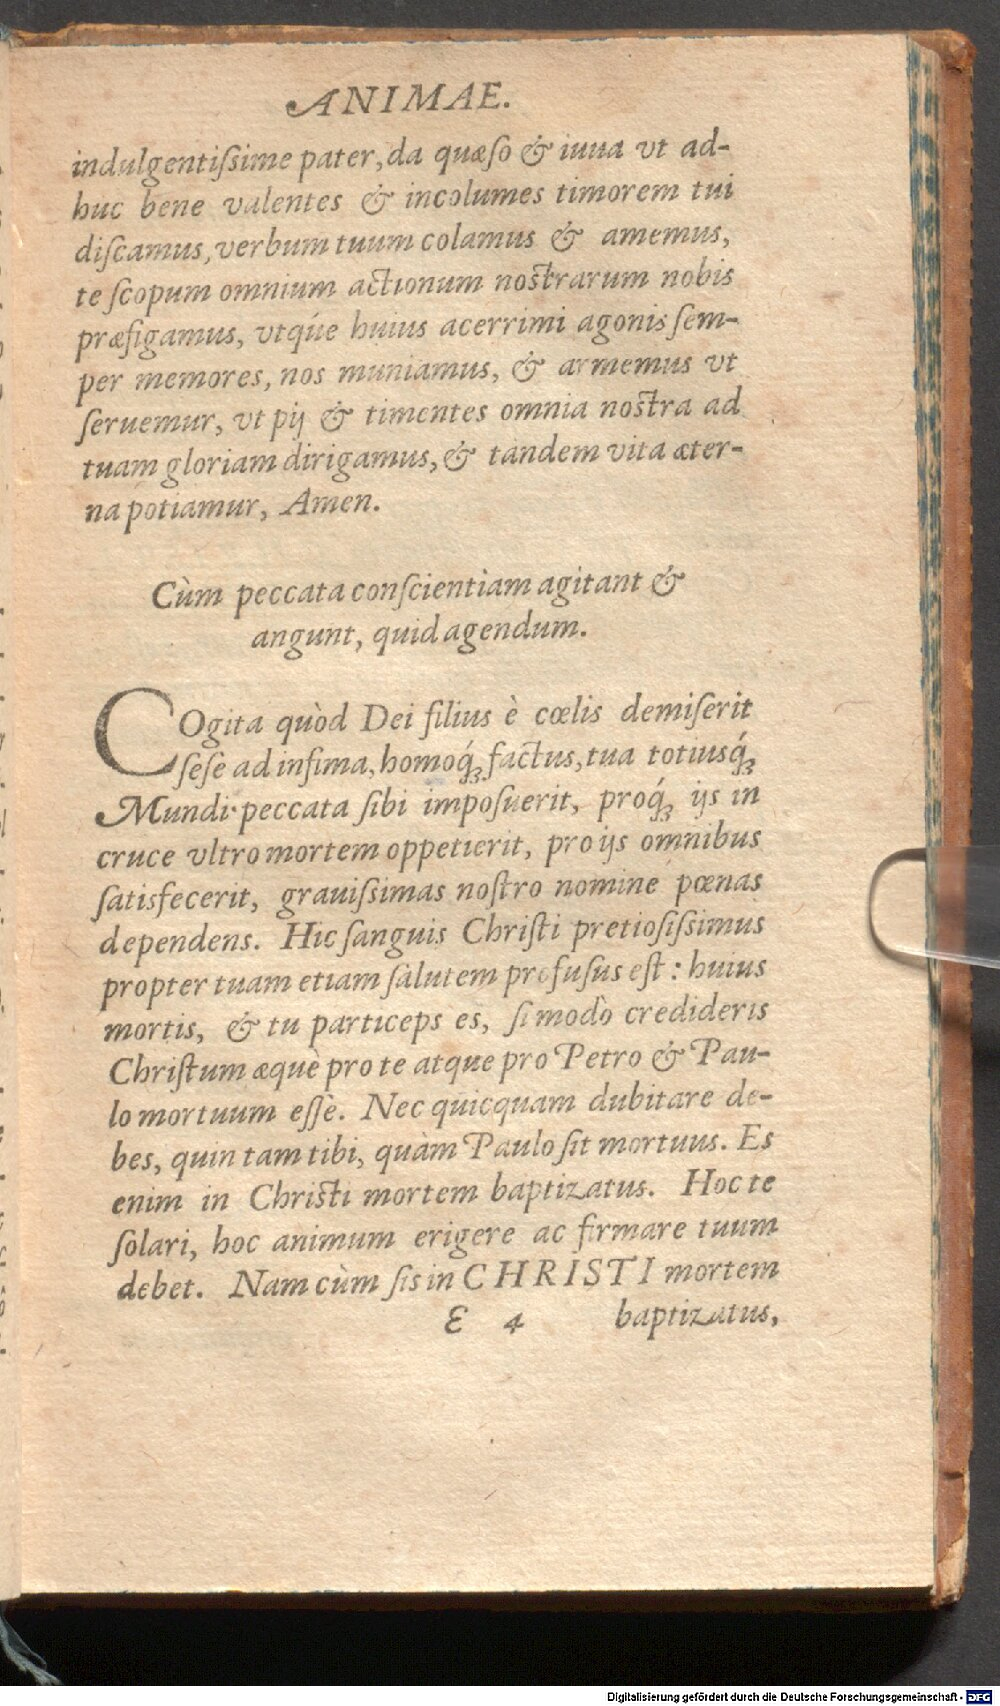 ANIMAE.
indulgentiſsime pater, da quæſo & iuua vt ad-
huc bene valentes & incolumes timorem tui
diſcamus, verbum tuum colamus & amemus,
te ſcopum omnium actionum noſtrarum nobis
præfigamus, vtq́ue huius acerrimi agonis ſem-
per memores, nos muniamus, & armemus vt
ſeruemur, vt pij & timentes omnia noſtra ad
tuam gloriam dirigamus, & tandem vita æter-
na potiamur, Amen.
Cùm peccata conſcientiam agitant &
angunt, quid agendum.
COgita quòd Dei filius è cœlis demiſerit
ſeſe ad infima, homoq́ꝫ factus, tua totiusq́ꝫ
Mundi peccata ſibi impoſuerit, proq́ꝫ ijs in
cruce vltro mortem oppetierit, pro ijs omnibus
ſatisfecerit, grauiſsimas noſtro nomine pœnas
dependens. Hic ſanguis Chriſti pretioſiſsimus
propter tuam etiam ſalutem profuſus eſt: huius
mortis, & tu particeps es, ſi modò credideris
Chriſtum æquè pro te atque pro Petro & Pau-
lo mortuum eſſè. Nec quicquam dubitare de-
bes, quin tam tibi, quàm Paulo ſit mortuus. Es
enim in Chriſti mortem baptizatus. Hoc te
ſolari, hoc animum erigere ac firmare tuum
debet. Nam cùm ſis in CHRISTI mortem
E 4 baptizatus,
Digitalisierung gefördert durch die Deutsche Forschungsgemeinschaft - DFG